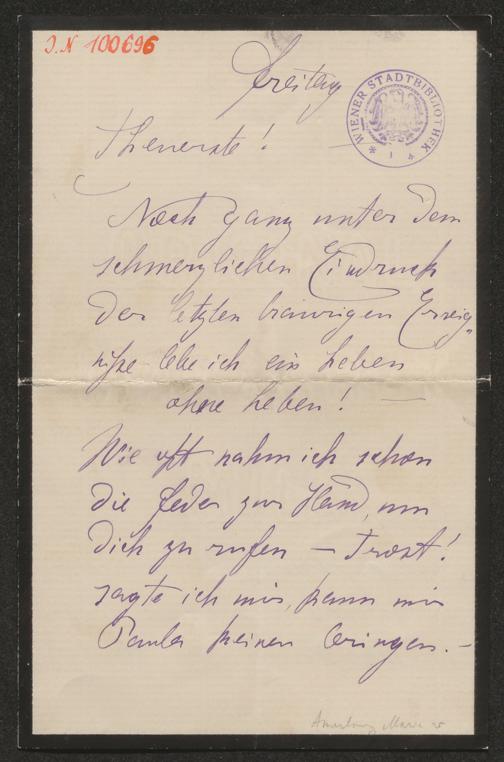 J.N 100696
Freitag
WIENER STADTBIBLIOTHEK
Theuerste!
Noch ganz unter dem
schmerzlichen Eindruck
der letzten traurigen Ereig„
niße lebe ich ein Leben
ohne Leben! —
Wie oft nahm ich schon
die Feder zur Hand, um
Dich zu rufen — Trost!
sagte ich mir, kann mir
Paula keinen bringen. —
Marie